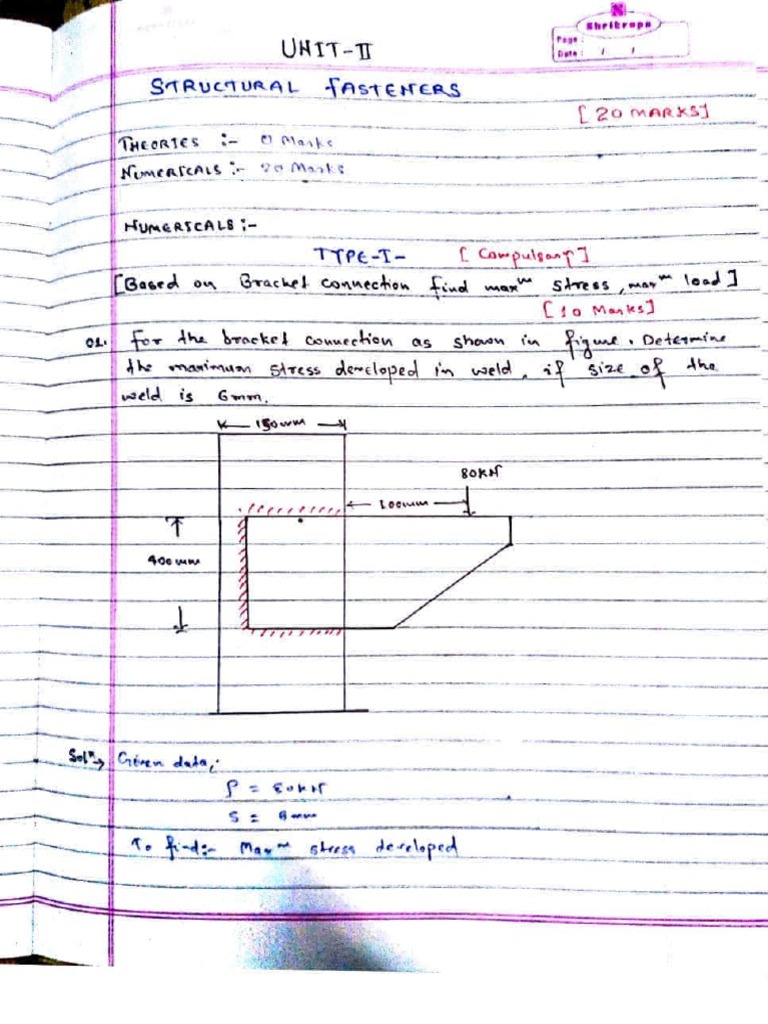 Shrikrupa
Page :
Date : / /
UNIT-II
STRUCTURAL FASTENERS
[20 MARKS]
THEORIES :- 0 Marks
NUMERICALS :- 20 Marks
NUMERICALS :-
TYPE-I- [Compulsory]
[Based on Bracket connection find maxᵐ stress, maxᵐ load]
[10 Marks]
Q1. For the bracket connection as shown in figure. Determine
the maximum stress developed in weld, if size of the
weld is 6mm.
150mm
80KN
100mm
400mm
Solⁿ→ Given data,:
P = 80KN
S = mm
To find:- Maxᵐ stress developed